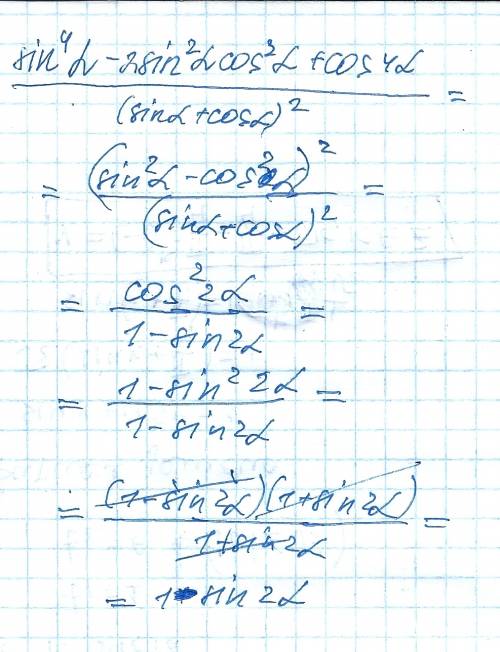 sin⁴α - 2sin²α cos²α + cos4α
(sinα + cosα)² =
= (sin²α - cos²α)²
(sinα + cosα)² =
= cos²2α
1 - sin2α =
= 1 - sin²2α
1 - sin2α =
= (1 - sin2α)(1 + sin2α)
1 + sin2α =
= 1 - sin2α